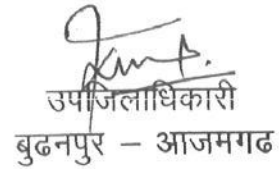 उपजिलाधिकारी
बुढनपुर – आजमगढ